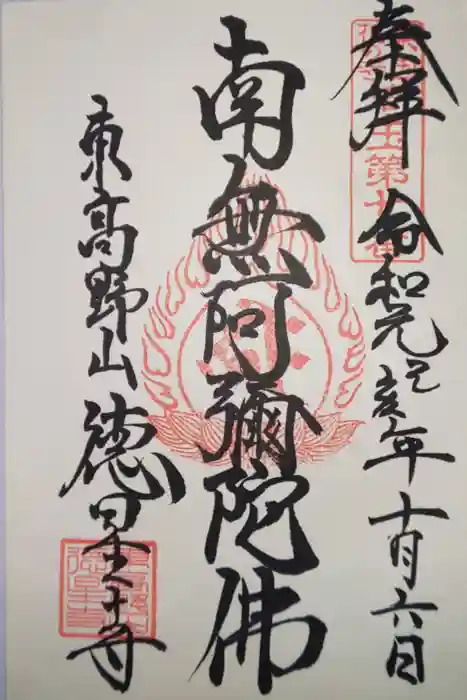 奉拜 令和元己亥年十月六日
南無阿彌陀佛
東高野山 德星寺